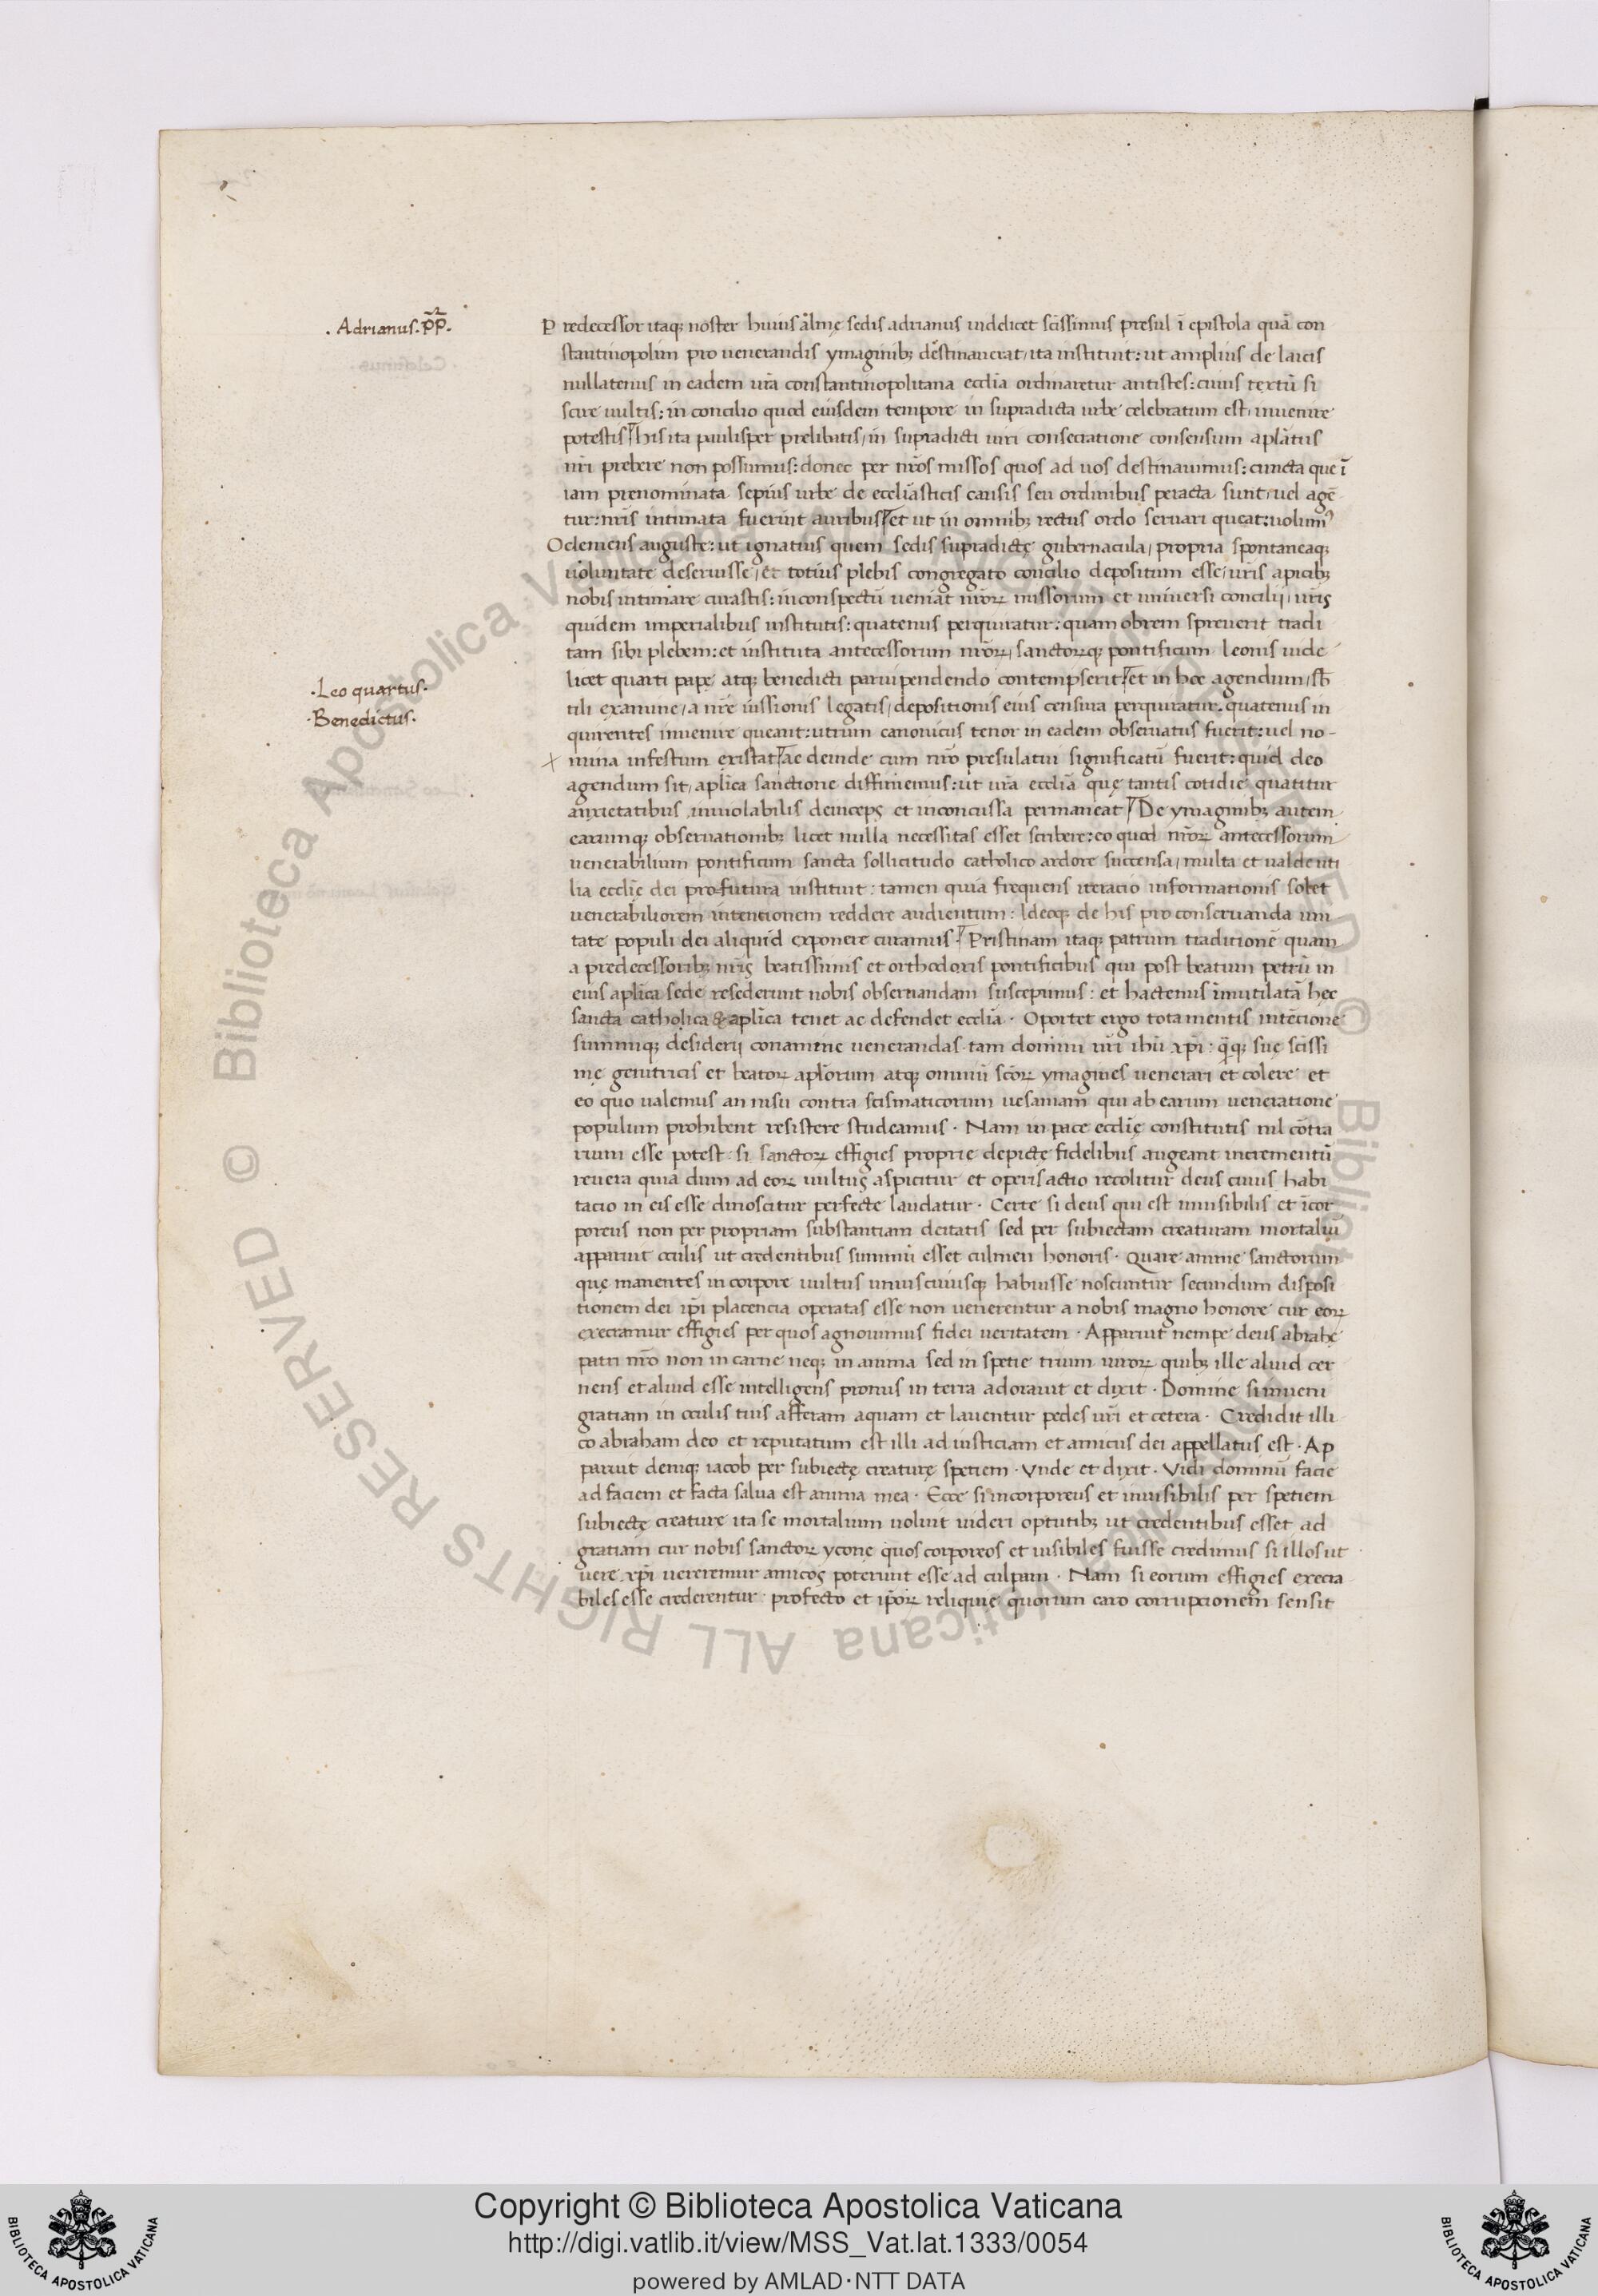 . Adrianus. p̃p̃.
P redecessor itaq; noster huius alme sedis adrianus uidelicet sc̄issimus presul ī epistola quā con
stantinopolim pro uenerandis ymaginib; destinauerat, ita instituit: ut amplius de laicis
nullatenus in eadem ur̄a constantinopolitana eccl̄ia ordinaretur antistes: cuius textū si
scire uultis: in concilio quod eiusdem tempore in supradicta urbe celebratum est, inuenire
potestis his ita paulisper prelibatis, in supradicti uiri consecratione consensum apl̄atus
nr̄i prebere non possumus: donec per nr̄os missos quos ad uos destinauimus: cuncta que ī
iam prenominata sepius urbe de eccl̄iasticis causis seu ordinibus peracta sunt, uel agē
tur: nr̄is intimata fuerint auribus et ut in omnib; rectus ordo seruari queat: uolum⁹
O clemens auguste: ut ignatius quem sedis supradictę gubernacula, propria spontaneaq;
uoluntate deseruisse, et totius plebis congregato concilio depositum esse, ur̄is apicib;
nobis intimare curastis: in conspectū ueniat nr̄oꝝ missorum et uniuersi concilij, ur̄is
quidem imperialibus institutis: quatenus perquiratur: quam obrem spreuerit tradi
tam sibi plebem: et instituta antecessorum nr̄oꝝ, sanctoꝝq; pontificum leonis uide
.Leo quartus.
licet quarti pape atq; benedicti paruipendendo contempserit et in hec agendum, sb̄
.Benedictus.
tili examine, a nr̄e iussionis legatis, depositionis eius censura perquiratur. quatenus in
quirentes inuenire queant: utrum canonicus tenor in eadem obseruatus fuerit: uel no-
mina infestum existat ac deinde cum nr̄o presulatui significatū fuerit: quid deo
agendum sit, apl̄ica sanctione diffiniemus: ut ur̄a eccl̄ia quę tantis cotidie quatitur
anxietatibus, inuiolabilis deinceps et inconcussa permaneat De ymaginib; autem
earumq; obseruationib; licet nulla necessitas esset scribere: eo quod nr̄oꝝ antecessorum
uenerabilium pontificum sancta sollicitudo catholico ardore succensa, multa et ualde uti
lia eccl̄ię dei profutura instituit: tamen quia frequens iteracio informationis solet
uenerabiliorem intentionem reddere audientum: Ideoq; de his pro conseruanda uni
tate populi dei aliquid exponere curamus. Pristinam itaq; patrum traditionē quam
a predecessorib; nr̄is beatissimis et orthodoxis pontificibus qui post beatum petrū in
eius apl̄ica sede resederunt nobis obseruandam suscepimus: et hactenus imutilatā hec
sancta catholica & apl̄ica tenet ac defendet eccl̄ia. Oportet ergo tota mentis intēcione
summiq; desiderij conamine uenerandas tam domini nr̄i ih̄u xp̄i: q̄q; suę sc̄issi
mę genitricis et beatoꝝ apl̄orum atq; omniū sc̄oꝝ ymagines uenerari et colere et
eo quo ualemus an nisu contra scismaticorum uesaniam qui ab earum ueneratione
populum prohibent resistere studeamus. Nam in pace eccl̄ię constitutis nil cōtra
rium esse potest si sanctoꝝ effigies proprie depictę fidelibus augeant incrementū
reuera quia dum ad eoꝝ uultus aspicitur et operis actio recolitur deus cuius habi
tacio in eis esse dinoscitur perfecte laudatur. Certe si deus qui est inuisibilis et īcor
poreus non per propriam substantiam deitatis sed per subiectam creaturam mortaliū
apparuit oculis ut credentibus summū esset culmen honoris. Quare anime sanctorum
quę manentes in corpore uultus uniuscuiusq; habuisse noscuntur secundum disposi
tionem dei ip̄i placencia operatas esse non uenerentur a nobis magno honore cur eoꝝ
execramur effigies per quos agnouimus fidei ueritatem. Apparuit nempe deus abrahę
patri nr̄o non in carne neq; in anima sed in spetie trium uiroꝝ quib; ille aliud cer
nens et aliud esse intelligens pronus in terra adorauit et dixit. Domine si inueni
gratiam in oculis tuis afferam aquam et lauentur pedes ur̄i et cetera. Credidit illi
co abraham deo et reputatum est illi ad iusticiam et amicus dei appellatus est. Ap
paruit deniq; iacob per subiectę creaturę spetiem. Vnde et dixit. Vidi dominū facie
ad faciem et facta salua est anima mea. Ecce si incorporeus et inuisibilis per spetiem
subiectę creature ita se mortalium uoluit uideri optutib; ut credentibus esset ad
gratiam cur nobis sanctoꝝ ycone quos corporeos et uisibiles fuisse credimus si illos ut
uere xp̄i uereremur amicos poterunt esse ad culpam. Nam si eorum effigies execra
biles esse crederentur profecto et ip̄oꝝ reliquię quorum caro corrupcionem sensit
© Biblioteca Apostolica Vaticana ALL RIGHTS RESERVED
© Biblioteca Apostolica Vaticana ALL RIGHTS RESERVED
Copyright © Biblioteca Apostolica Vaticana
http://digi.vatlib.it/view/MSS_Vat.lat.1333/0054
powered by AMLAD·NTT DATA
BIBLIOTECA APOSTOLICA VATICANA
BIBLIOTECA APOSTOLICA VATICANA